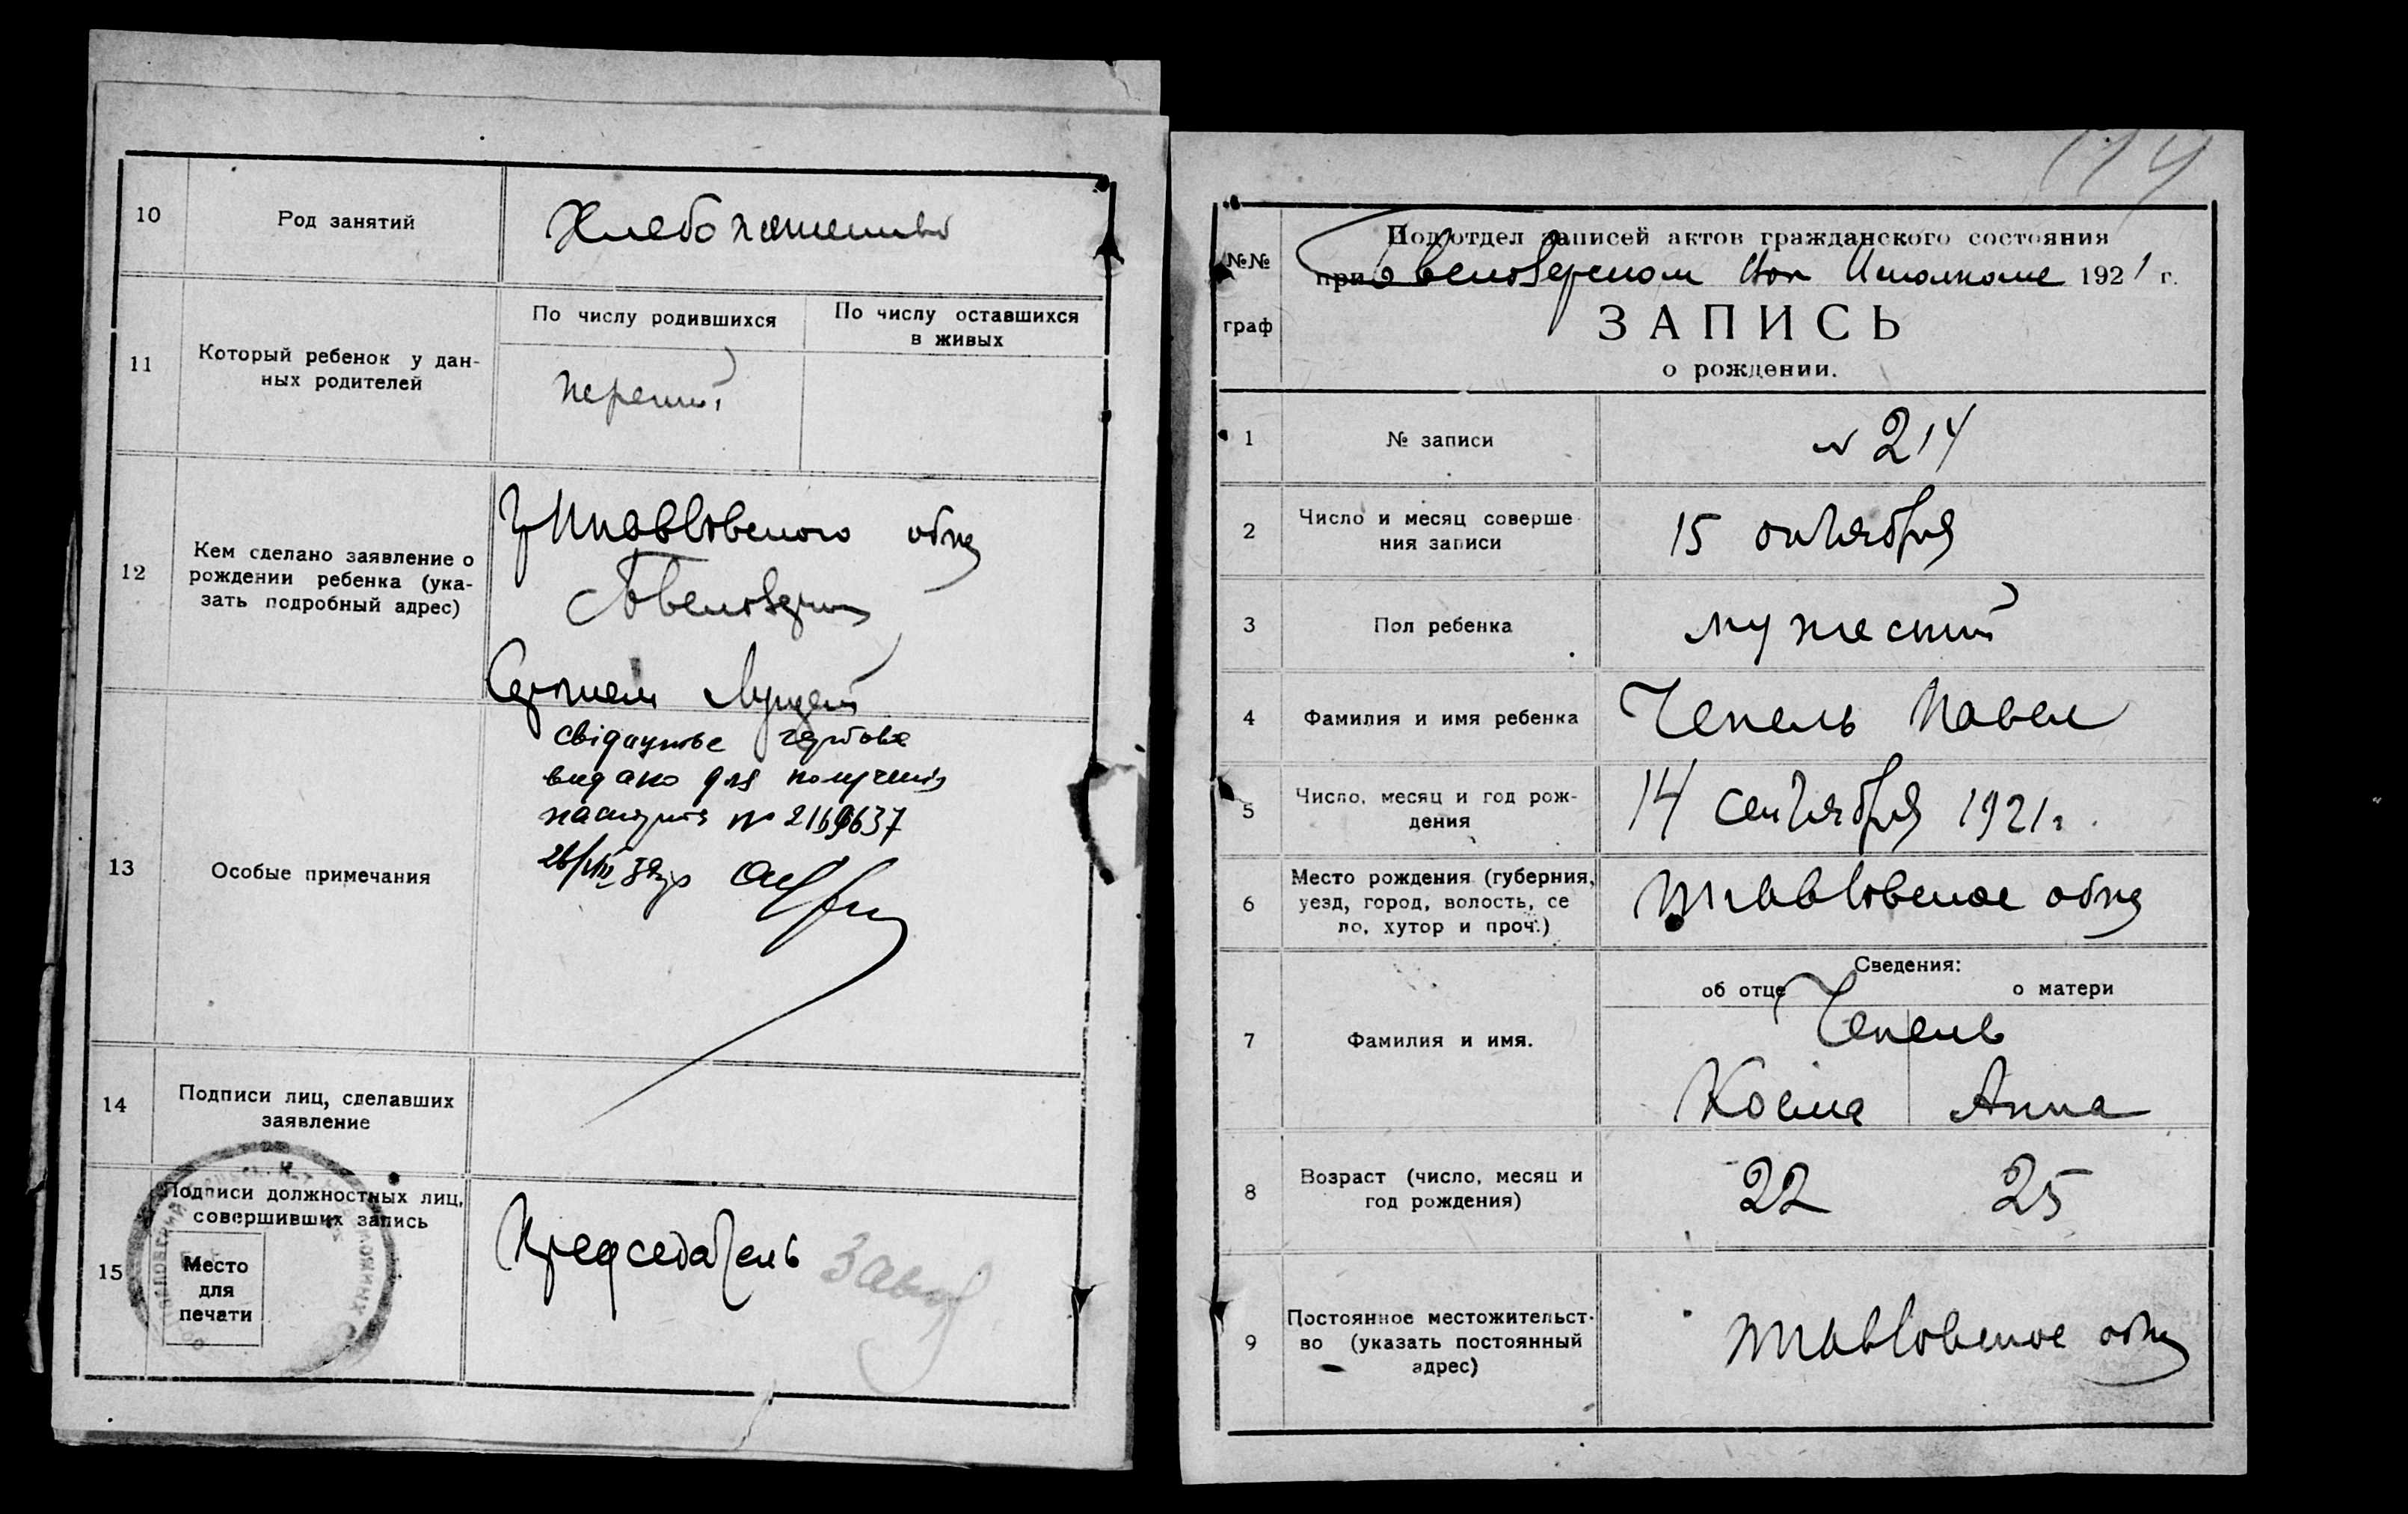 10
Род занятий
Хлебопашество
11
Который ребенок у дан-
ных родителей
По числу родившихся
По числу оставшихся
в живых
первый
12
Кем сделано заявление о
рождении ребенка (ука-
зать подробный адрес)
общ
13
Особые примечания
свідоцтво
видано для
паспорта № 2169637
14
Подписи лиц, сделавших
заявление
15
Подписи должностных лиц,
совершивших запись
Место
для
печати
Председатель
№№
граф
Подотдел записей актов гражданского состояния
при Исполкоме 1921 г.
ЗАПИСЬ
о рождении.
1
№ записи
№ 214
2
Число и месяц соверше-
ния записи
15 октября
3
Пол ребенка
мужеский
4
Фамилия и имя ребенка
Чепель Павел
5
Число, месяц и год рож-
дения
14 сентября 1921 г.
6
Место рождения (губерния,
уезд, город, волость, се
ло, хутор и проч.)
общ
Сведения:
об отце
о матери
7
Фамилия и имя.
Чепель
Косма Анна
8
Возраст (число, месяц и
год рождения)
22 25
9
Постоянное местожительст-
во (указать постоянный
адрес)
общ